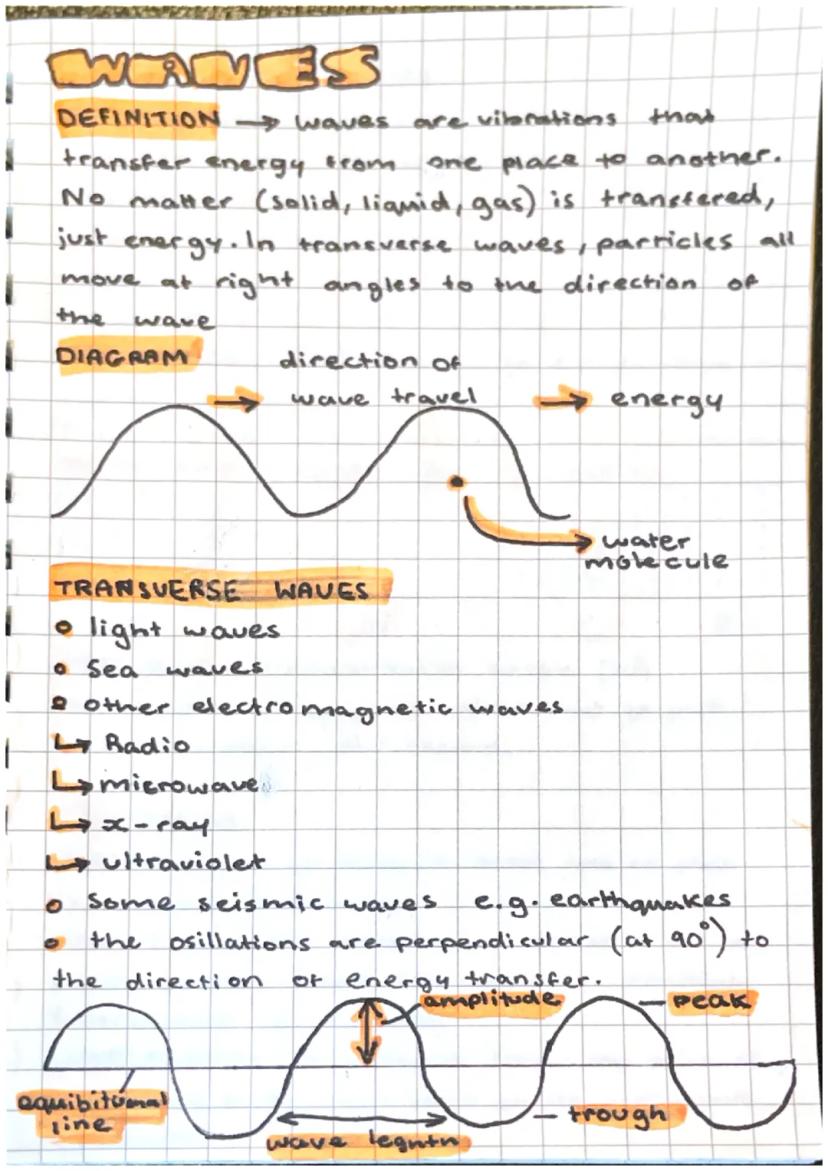 WAVES
DEFINITION → waves are vibrations that
transfer energy from one place to another.
No matter (solid, liquid, gas) is transfered,
just energy. In transverse waves, particles all
move at right angles to the direction of
the wave
DIAGRAM
direction of
→ wave travel → energy
water
molecule
TRANSVERSE WAVES
• light waves
• sea waves
• other electromagnetic waves
↳ Radio
↳ microwave
↳ x-ray
↳ ultraviolet
• some seismic waves e.g. earthquakes
• the osillations are perpendicular (at 90°) to
the direction of energy transfer.
amplitude
peak
equibitional
line
trough
wave legnth